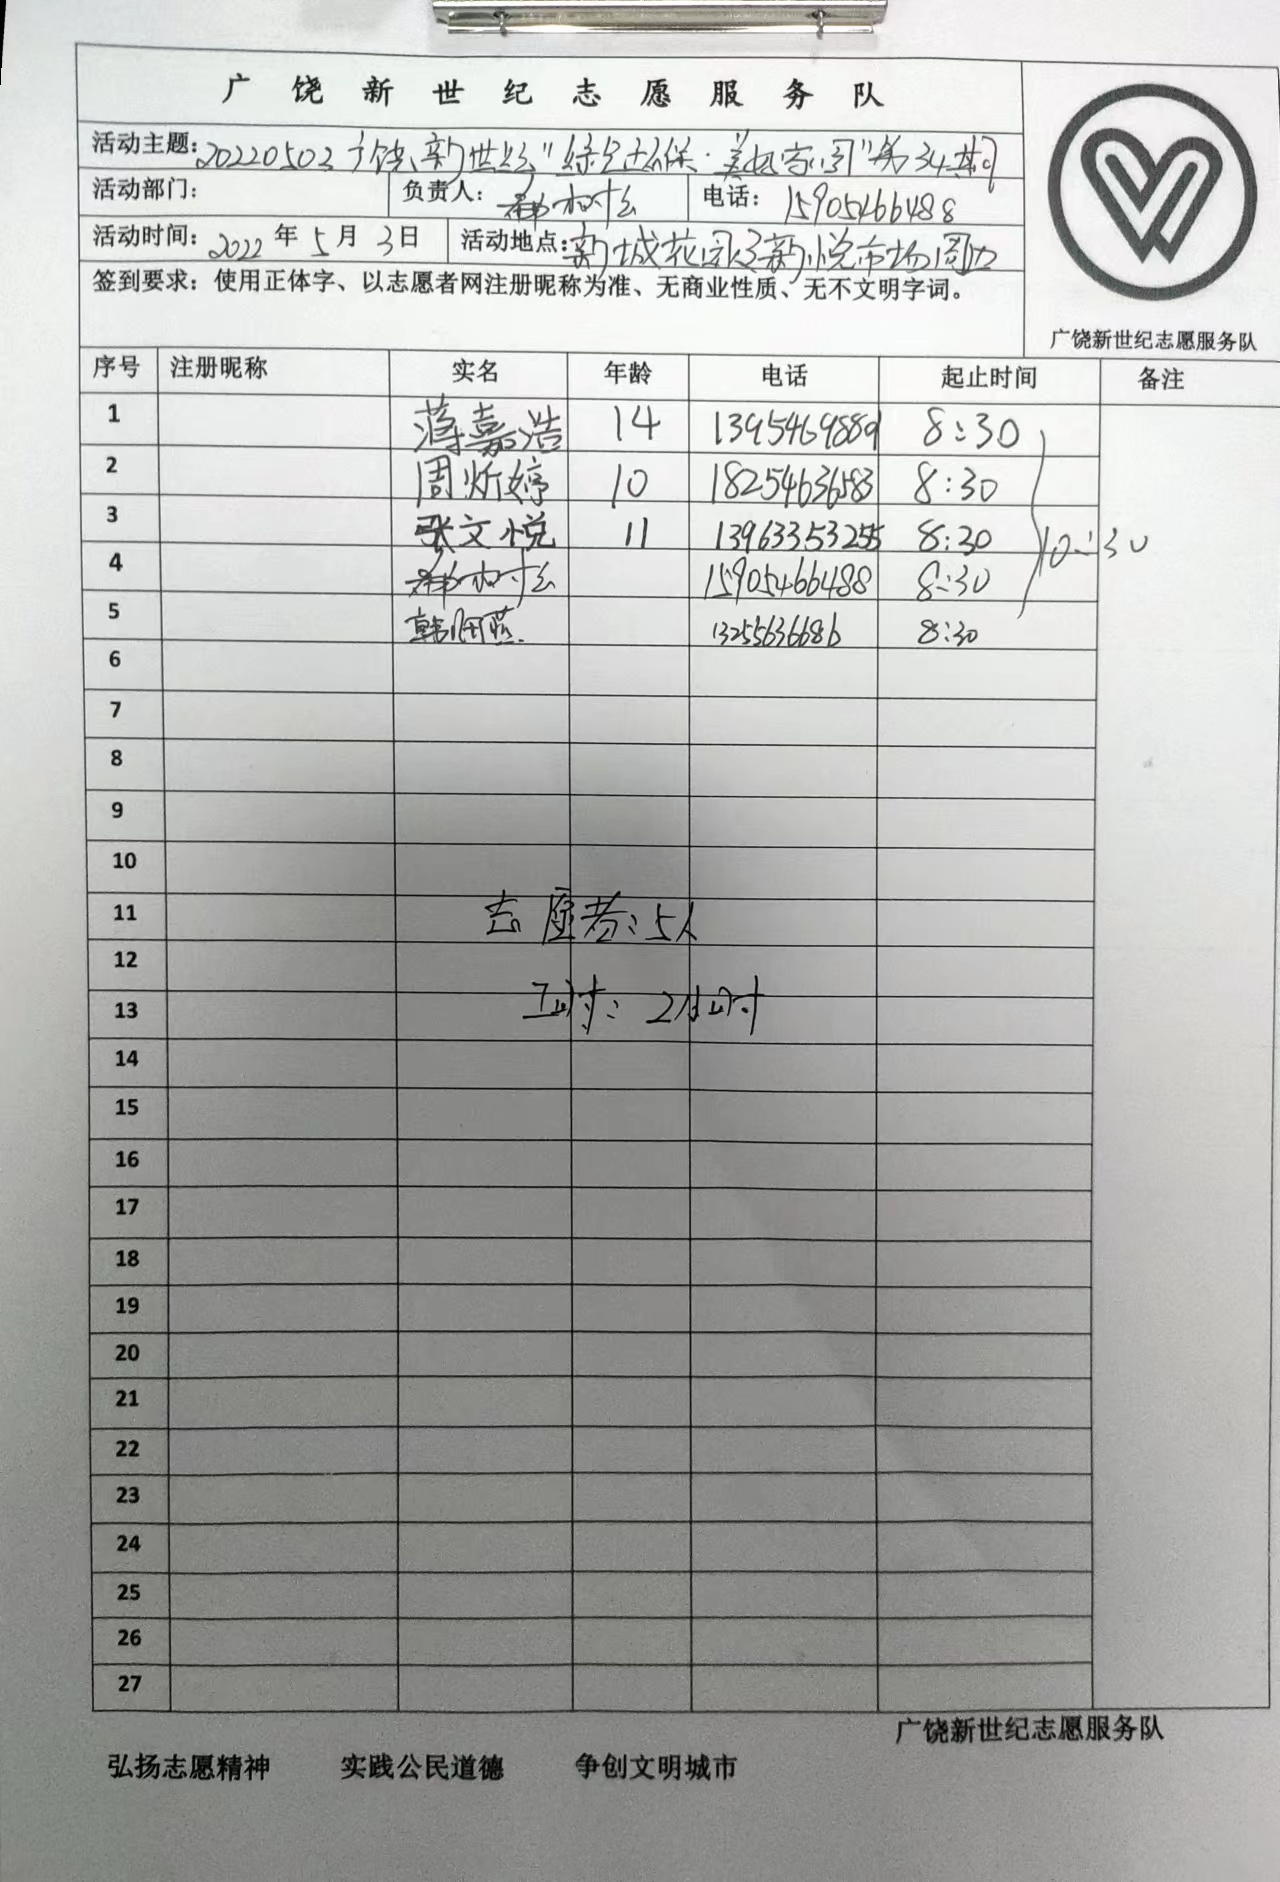 广饶新世纪志愿服务队
活动主题：20220503广饶新世纪“绿色环保·美好家园”第34期
活动部门： 负责人： 电话：15905466488
活动时间：2022年5月3日 活动地点：新城花园及新悦市场周边
签到要求：使用正体字、以志愿者网注册昵称为准、无商业性质、无不文明字词。
广饶新世纪志愿服务队
序号 注册昵称 实名 年龄 电话 起止时间 备注
1 蒋嘉浩 14 13954698889 8:30
2 周炘婷 10 18254636583 8:30
3 张文悦 11 13963353255 8:30 10:30
4 15905466488 8:30
5 韩 13255636686 8:30
6
7
8
9
10
11 志愿者：5人
12
13 工时：2小时
14
15
16
17
18
19
20
21
22
23
24
25
26
27
广饶新世纪志愿服务队
弘扬志愿精神 实践公民道德 争创文明城市